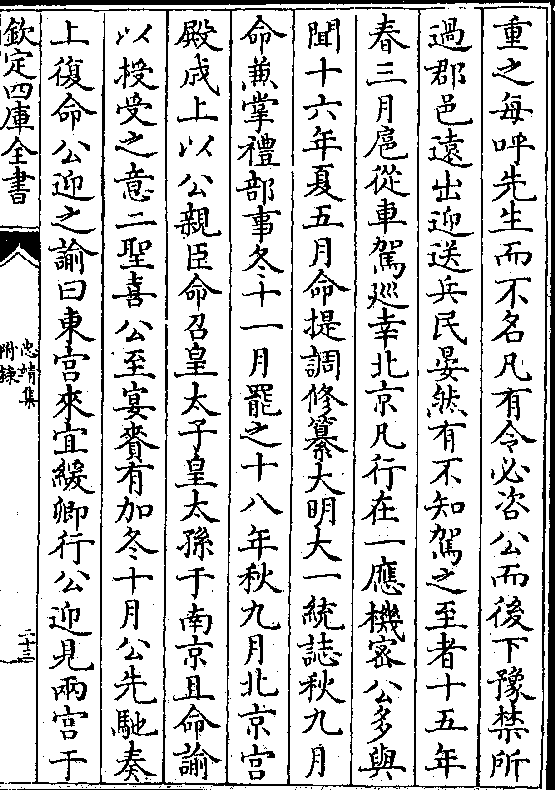 重之每呼先生而不名凡有令必咨公而後下豫禁所
過郡邑遠出迎送兵民晏然有不知駕之至者十五年
春三月扈從車駕巡幸北京凡行在一應機密公多與
聞十六年夏五月命提調修纂大明大一統誌秋九月
命兼掌禮部事冬十一月罷之十八年秋九月北京宮
殿成上以公親臣命召皇太子皇太孫于南京且命諭
以授受之意二聖喜公至宴賚有加冬十月公先馳奏
上復命公迎之諭曰東宮來宜緩卿行公迎見兩宮于
欽定四庫全書
忠靖集
附錄
二十三